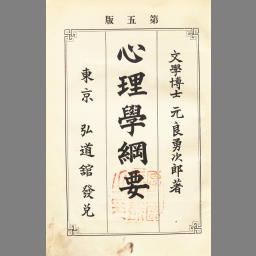 第五版
文學博士 元良勇次郎著
心理學綱要
東京 弘道館發兌